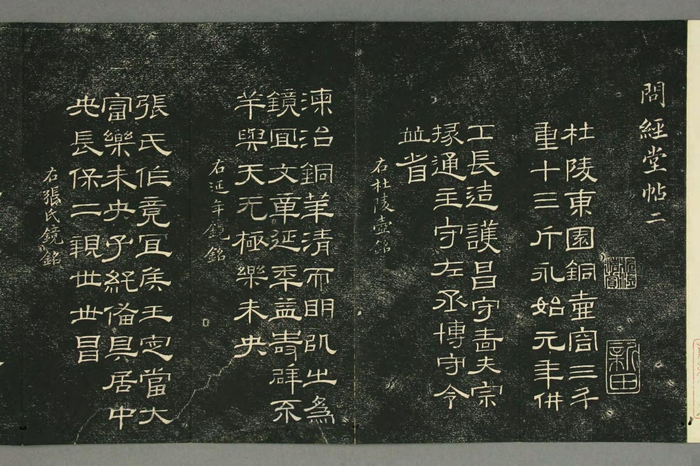 問經堂帖二
新田
杜陵東園銅壺容三斗
重十三斤永始元年供
工長造護昌守嗇夫宗
掾通主守左丞博守令
竝省
右杜陵壺銘
湅治銅華清而明以之為
鏡宜文章延年益壽辟不
羊與天无極樂未央
右延年鏡銘
張氏作竟宜侯王家當大
富樂未央子孫備具居中
央長保二親世世昌
右張氏鏡銘